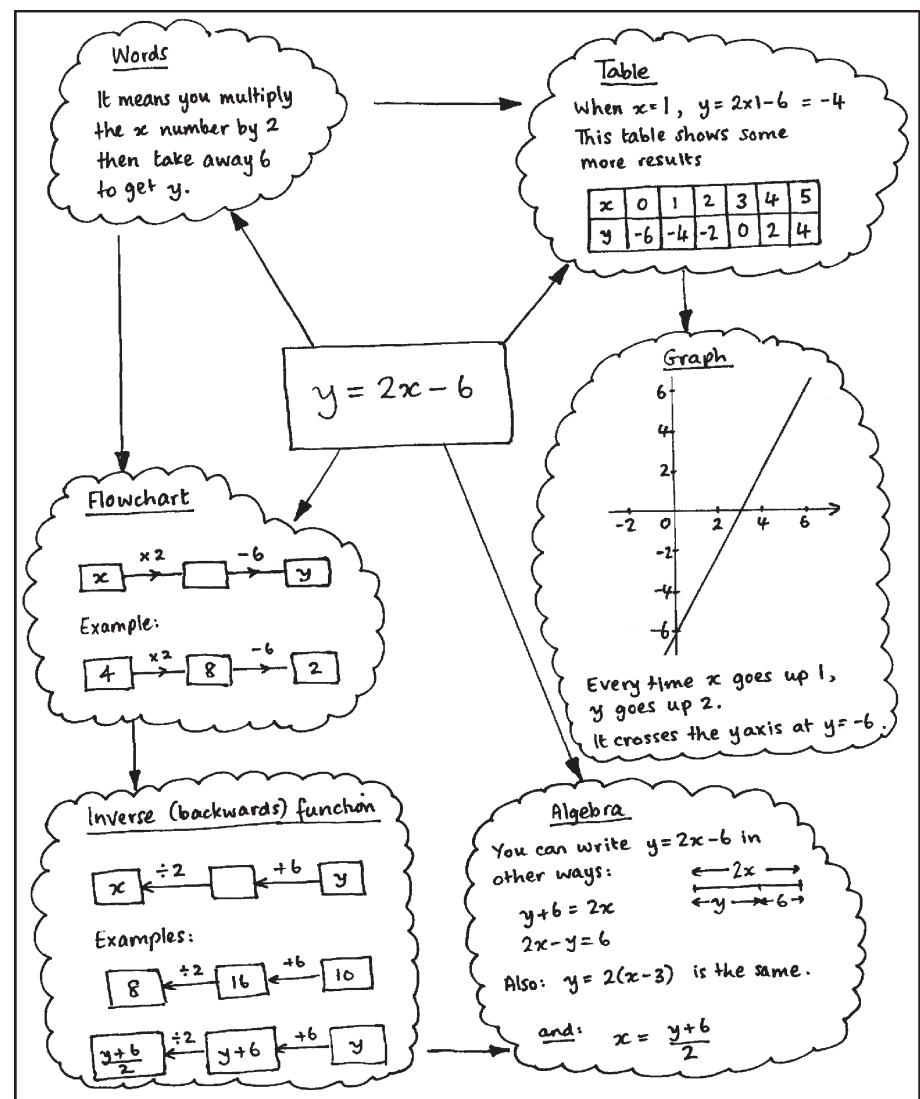 Words
It means you multiply
the x number by 2
then take away 6
to get y.
Table
When x=1, y=2x1-6 = -4
This table shows some
more results
x 0 1 2 3 4 5
y -6 -4 -2 0 2 4
y = 2x - 6
Graph
6
4
2
-2 0 2 4 6
-2
-4
-6
Every time x goes up 1,
y goes up 2.
It crosses the y axis at y=-6.
Flowchart
×2 -6
x y
Example:
×2 -6
4 8 2
Inverse (backwards) function
÷2 +6
x y
Examples:
÷2 +6
8 16 10
÷2 +6
y+6/2 y+6 y
Algebra
You can write y=2x-6 in
other ways:
2x
y 6
y+6 = 2x
2x-y=6
Also: y = 2(x-3) is the same.
and: x = y+6/2